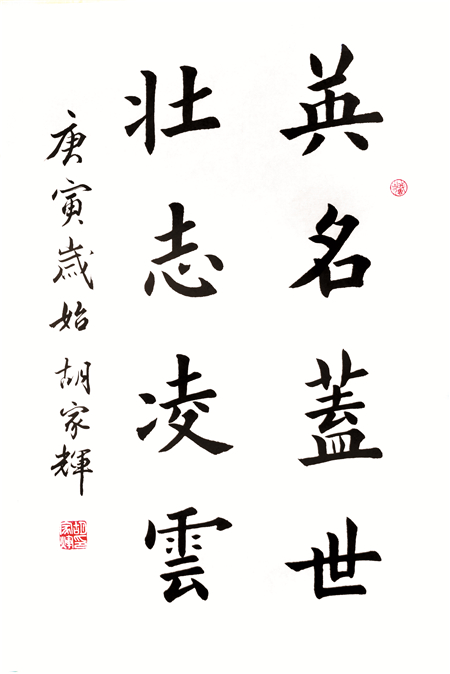 英名蓋世
壯志凌雲
庚寅歲始 胡家輝